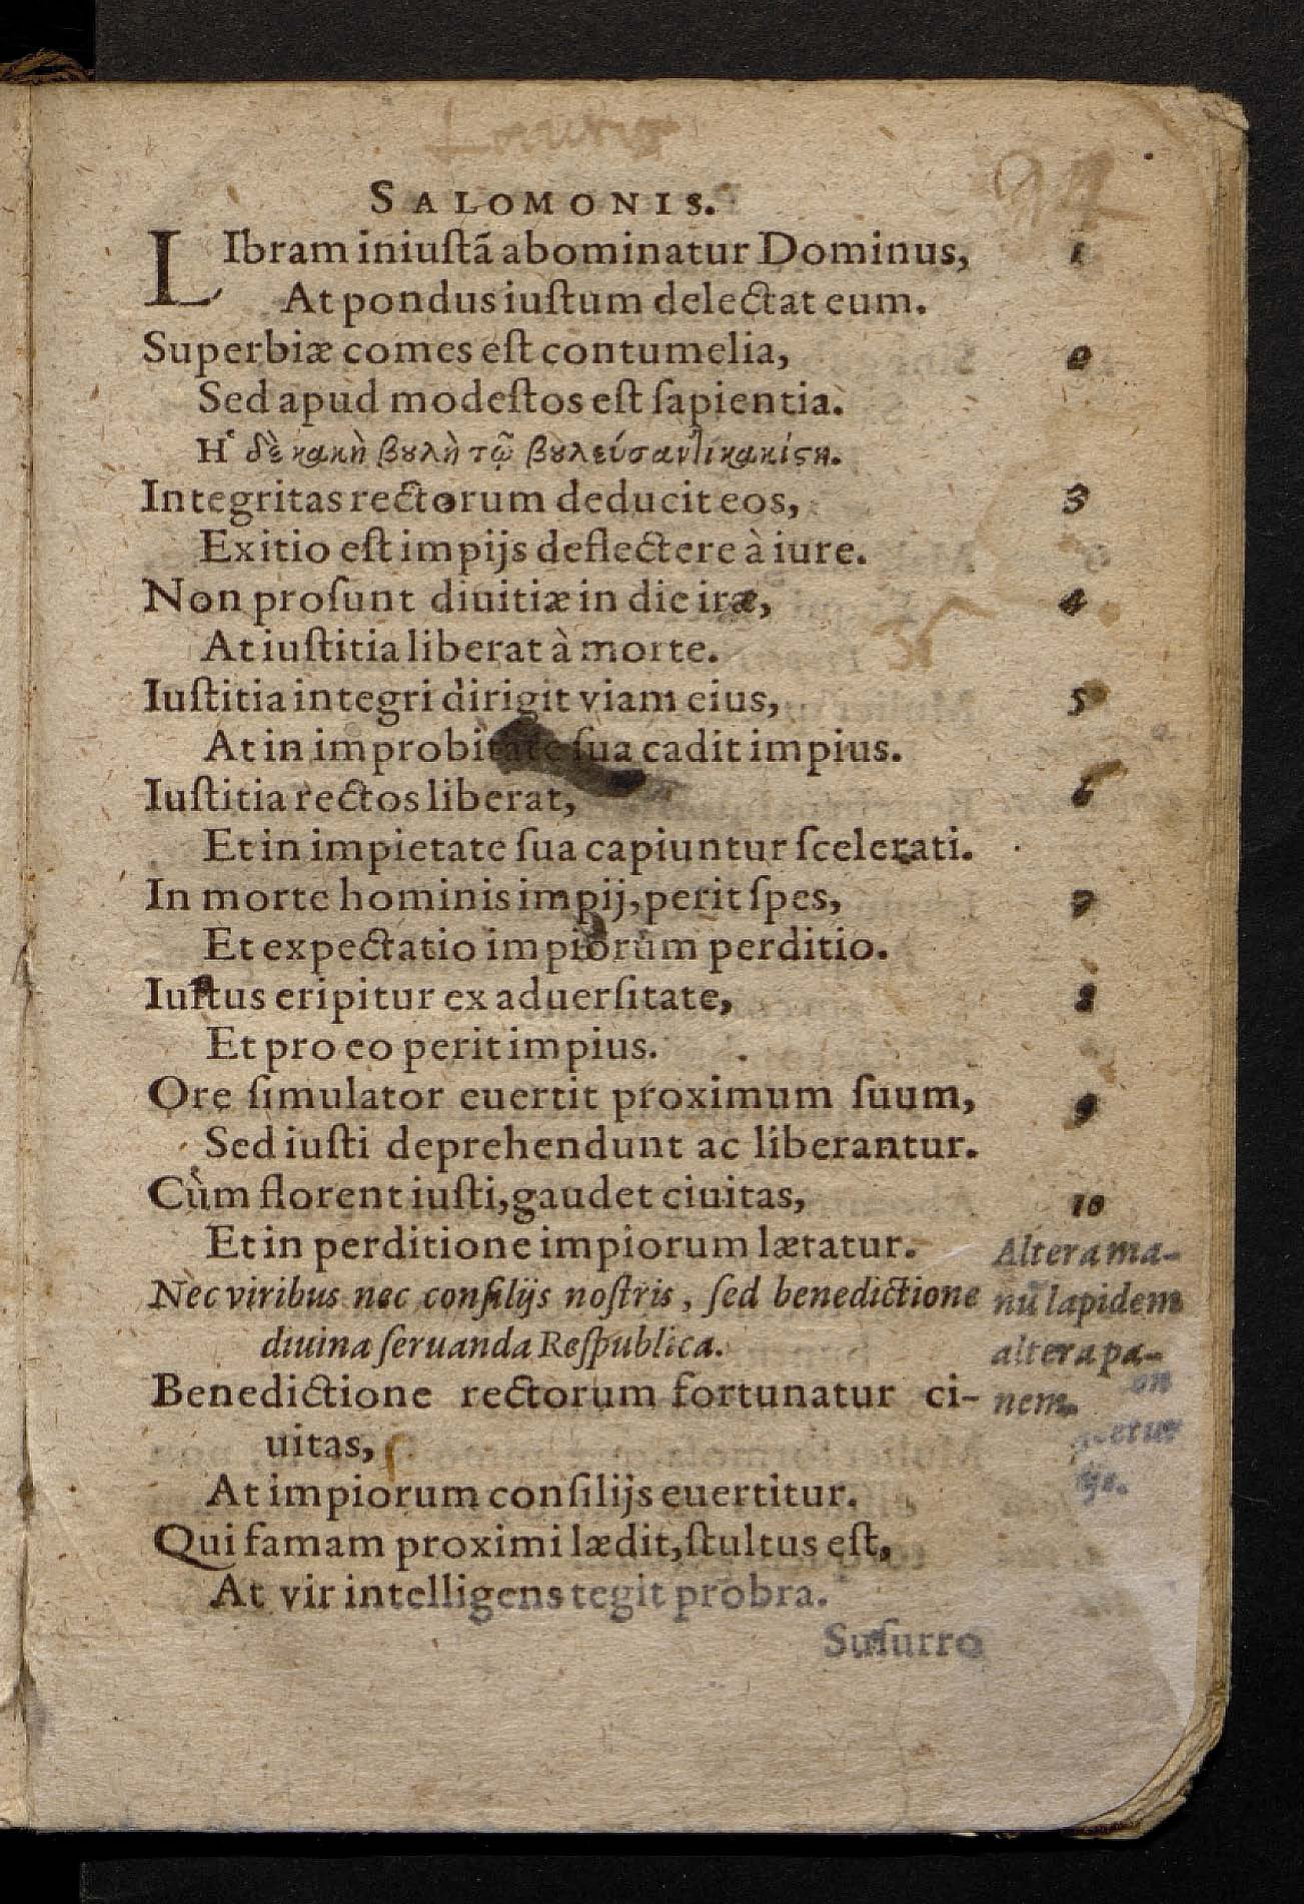 SALOMONIS.
LIbram iniuſtã abominatur Dominus, 1
At pondus iuſtum delectat eum.
Superbiæ comes eſt contumelia, 2
Sed apud modeſtos eſt ſapientia.
Ἡ δὲ κακὴ βȣλὴ τῷ βȣλεύσαντι κακίϛη.
Integritas rectorum deducit eos, 3
Exitio eſt impijs deflectere à iure.
Non proſunt diuitiæ in die iræ, 4
At iuſtitia liberat à morte.
Iuſtitia integri dirigit viam eius, 5
At in improbitate ſua cadit impius.
Iuſtitia rectos liberat, 6
Et in impietate ſua capiuntur ſcelerati.
In morte hominis impij, perit ſpes, 7
Et expectatio impiorum perditio.
Iuſtus eripitur ex aduerſitate, 8
Et pro eo perit impius.
Ore ſimulator euertit proximum ſuum, 9
Sed iuſti deprehendunt ac liberantur.
Cùm florent iuſti, gaudet ciuitas, 10
Et in perditione impiorum lætatur.
Altera ma-
Nec viribus nec conſilijs noſtris, ſed benedictione
nũ lapidem
diuina ſeruanda Reſpublica.
altera pa-
Benedictione rectorum fortunatur ci-
nem.
uitas,
At impiorum conſilijs euertitur.
Qui famam proximi lædit, ſtultus eſt,
At vir intelligens tegit probra.
Suſurro